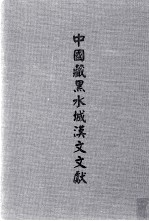 中國藏黑水城漢文文獻